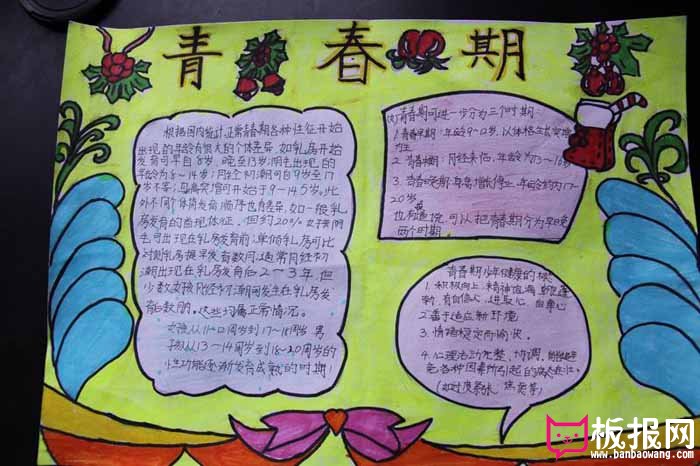 青春期
根据国内统计,正常青春期各种性征开始
出现的年龄有很大的个体差异,如乳房开始
发育可早自8岁,晚至13岁;阴毛出现的
年龄为8~14岁;月经初潮可自9岁至17
岁不等;身高突增可开始于9~14.5岁。此
外不同个体发育顺序也有差异,如一般乳
房发育的出现
20%女子阴
毛可出现在乳房发育前,单侧乳房可比
对侧乳房提早发育数月,通常月经初
潮出现在乳房发育后2~3年,但
少数女孩月经初潮间发生在乳房发
育的数月。这些均属正常情况。
女孩从11~12周岁到17~18周岁 男
孩从13~14周岁到18~20周岁的
性功能逐渐发育成熟的时期!
青春期可进一步分为三个时期:
1.青春早期:年龄9~12岁,以体格生长突增
为主
2.青春中期:月经来临,年龄为13~16岁
3.青春晚期:身高增长停止,年龄约为17~
20岁。
也有可以把青春期分为早晚
两个时期。
青春期少年健康的
1.积极向上,精神饱满,朝气蓬
勃,有自信心,进取心,自尊心
2.善于适应新环境
3.情绪稳定而愉快。
4.心理活动完整、协调,能避
免各种因素所引起的病态
(如过度紧张、焦虑等)
板报网
www.banbaowang.com